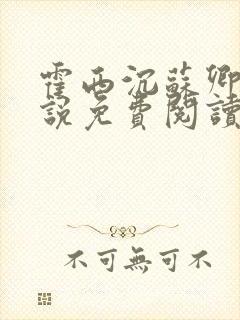 霍西沉蘇卿
說免費閱讀
不可無可不